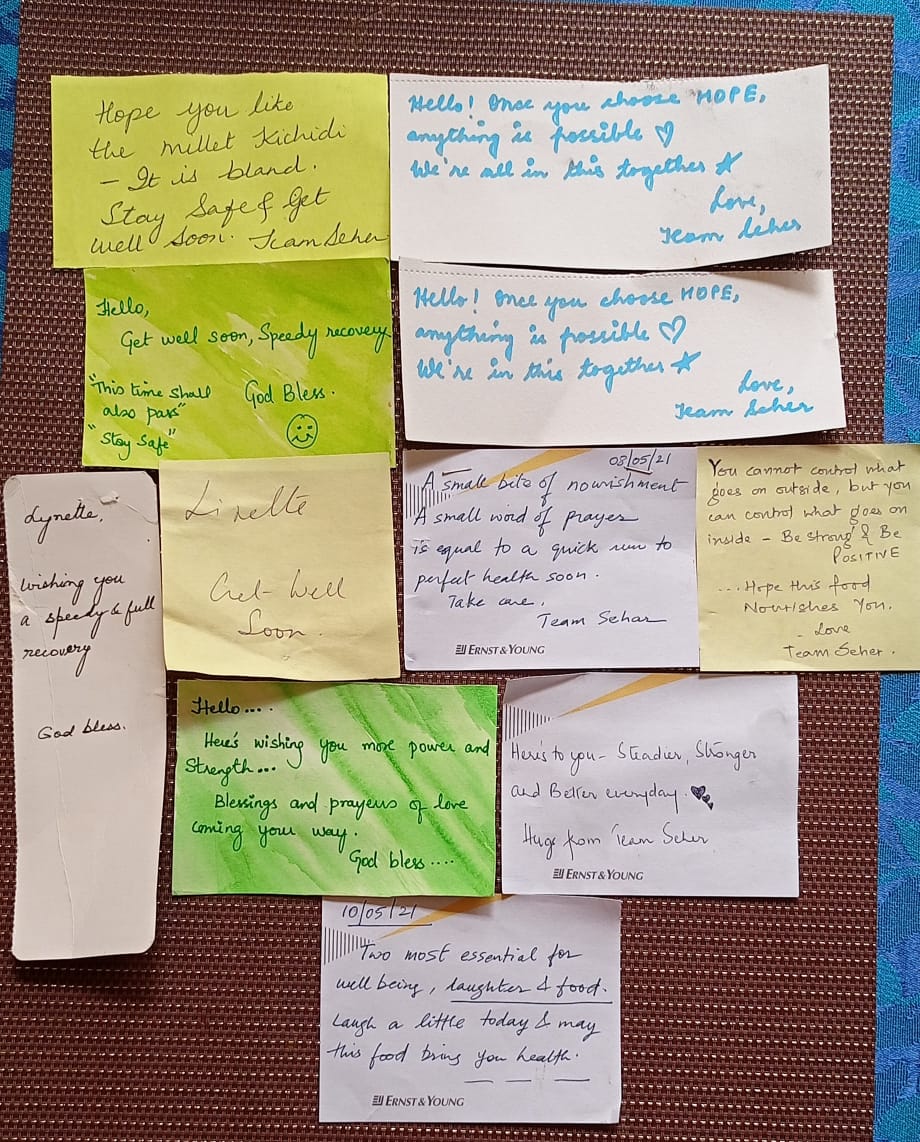 Hope you like
the millet Kichidi
- It is bland.
Stay Safe & Get
well soon. Team Seher
Hello! Once you choose HOPE,
anything is possible ♡
We're all in this together ★
Love,
Team Seher
Hello,
Get well soon, Speedy recovery
"This time shall
also pass"
God Bless.
"Stay Safe"
Hello! Once you choose HOPE,
anything is possible ♡
We're in this together ★
Love,
Team Seher
Lynette,
Wishing you
a speedy & full
recovery
God bless.
Linette
Get-Well
Soon.
03/05/21
A small bite of nourishment
A small word of prayer
is equal to a quick run to
perfect health soon.
Take care.
Team Sehar
ERNST & YOUNG
You cannot control what
goes on outside, but you
can control what goes on
inside - Be strong & Be
POSITIVE
...Hope this food
Nourishes You.
- Love
Team Seher.
Hello....
Here's wishing you more power and
Strength...
Blessings and prayers of love
coming your way.
God bless....
Here's to you - Steadier, Stronger
and Better everyday.
Hugs from Team Seher
ERNST & YOUNG
10/05/21
Two most essential for
well being, laughter & food.
Laugh a little today & may
this food bring you health.
ERNST & YOUNG